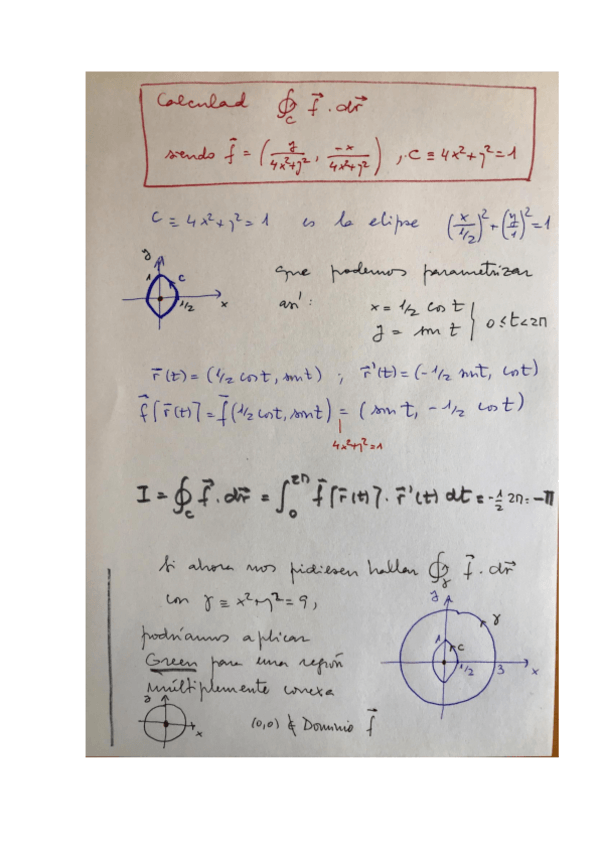 Calculad ∮_C f⃗ · dr⃗
siendo f⃗ = (y/(4x²+y²), -x/(4x²+y²)), C ≡ 4x²+y²=1
C ≡ 4x²+y²=1 es la elipse (x/(1/2))² + (y/1)² = 1
y
1
C
1/2
x
que podemos parametrizar
así:
x = 1/2 cos t
y = sin t } 0 ≤ t < 2π
r⃗(t) = (1/2 cos t, sin t) ; r⃗'(t) = (-1/2 sin t, cos t)
f⃗[r⃗(t)] = f⃗(1/2 cos t, sin t) = (sin t, -1/2 cos t)
4x²+y²=1
I = ∮_C f⃗ · dr⃗ = ∫₀^2π f⃗[r⃗(t)] · r⃗'(t) dt = -1/2 2π = -π
Si ahora nos pidiesen hallar ∮_γ f⃗ · dr⃗
con γ ≡ x²+y²=9,
podríamos aplicar
Green para una región
múltiplemente conexa
y
γ
1
C
1/2
3
x
y
x
(0,0) ∉ Dominio f⃗